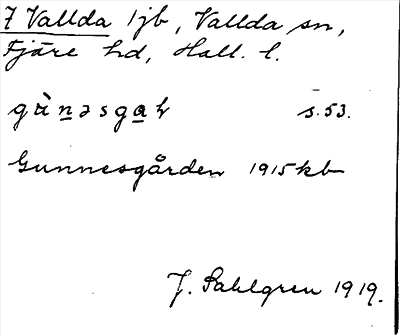 7 Vallda 1jb, Vallda sn,
Fjäre hd, Hall. l.
gùnəsgaḥ s. 53.
Gunnesgården 1915 kb
J. Sahlgren 1919.